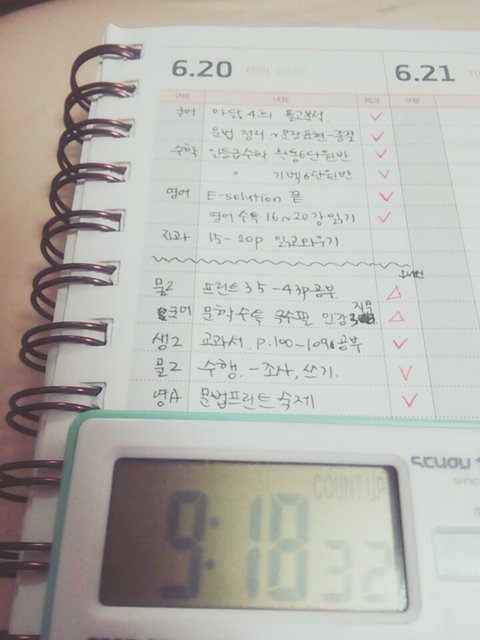 6.20 MON D-150
6.21
구분 내용 체크 구분
국어 마닳 4회 풀고분석
문법 정리
수학
기벡 6단원 반
영어 E-solution 끝
영어수특 16~20강 읽기
15-20p 읽고외우기
물2 프린트 35-43p 공부
문학수특 인강
생2 교과서 p.100-109 공부
물2 수행 - 조사, 쓰기
영A 문법프린트 숙제
COUNT UP
9:18 32